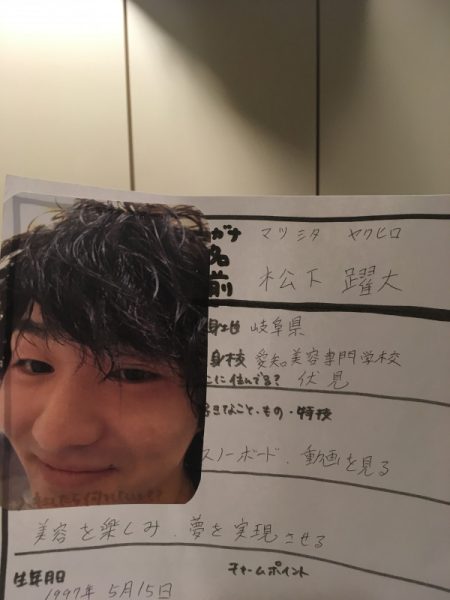 ガナ マツシタ ヤクヒロ
名前 松下 躍大
身地 岐阜県
身校 愛知美容専門学校
こに住んでる? 伏見
きなこと・もの・特技
スノーボード、動画を見る
美容を楽しみ、夢を実現させる
生年月日 チャームポイント
1997年 5月15日